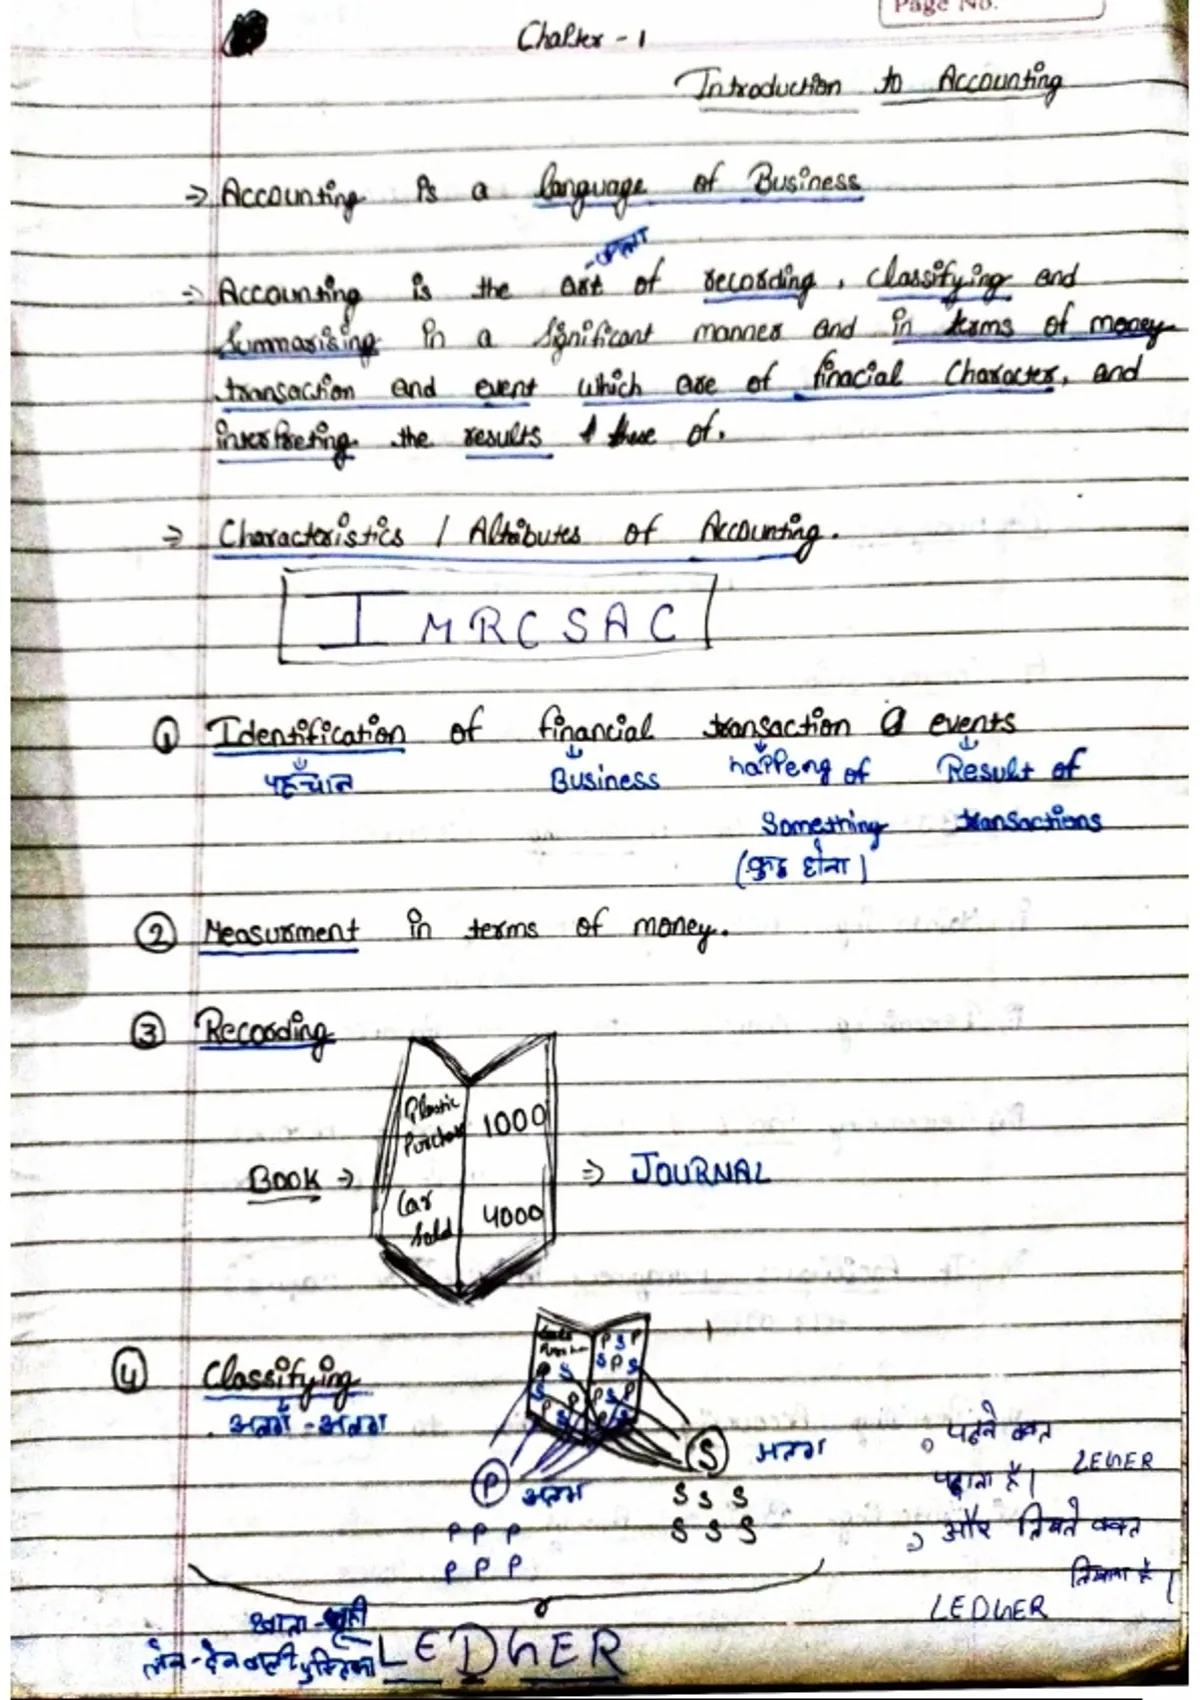 Page No.
Chapter - 1
Introduction to Accounting
⇒ Accounting is a language of Business
- कला
⇒ Accounting is the art of recording, classifying and
Summarising in a significant manner and in terms of money
transaction and event which are of finacial Character, and
interpreting the results there of.
⇒ Characteristics / Attributes of Accounting.
IMRCSAC
① Identification of financial transaction & events
पहचान Business happeng of Result of
Something transactions
(कुछ होना)
② Measurment in terms of money.
③ Recording
Plastic Purchase 1000
BOOK → ⇒ JOURNAL
Car Sold 4000
P S P
P S S P S
S P S P
P S P
④ Classifying
अलग - अलग
S अलग
P अलग
S S S
P P P S S S
P P P
पढ़ते वक्त
LEGER
पढ़ना है।
और लिखते वक्त
लिखना है।
LEDGER
खाता-बही
लेन-देन वाली पुस्तिका LEDGER